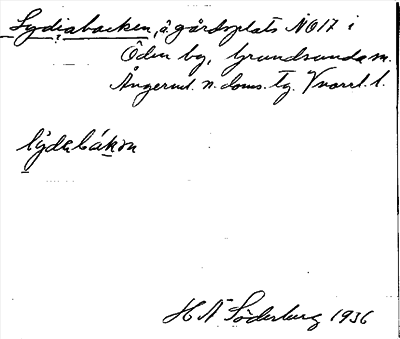 Lydiabacken, å gårdsplats NO17 i
Öden by, Grundsunda sn.
Ångerml. n. doms. tg. Vnorrl. l.
lydabákɘn
H N Söderberg 1936